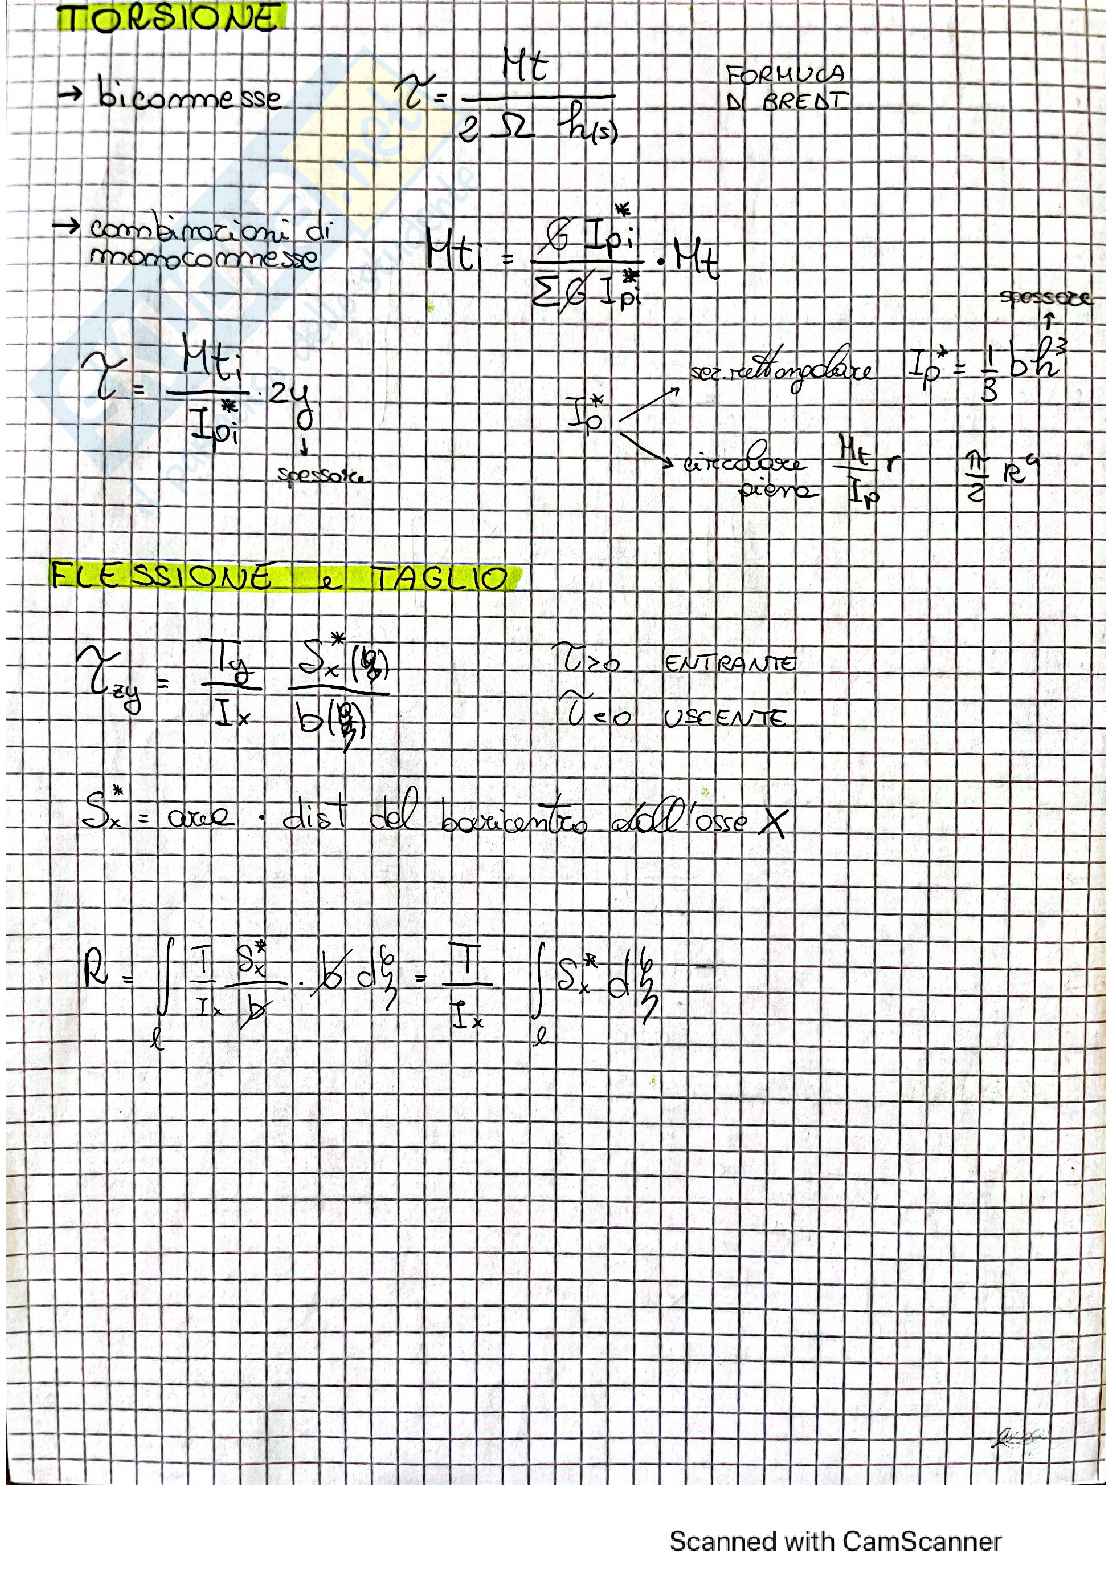 TORSIONE
→ biconnesse τ = Mt / (2 Ω h(s)) FORMULA DI BREDT
→ combinazioni di monoconnesse Mti = (G Ipi*) / (Σ G Ipi*) · Mt
spessore
τ = Mti / Ipi* · 2y
spessore
Ip*
sez. rettangolare Ip* = 1/3 b h³
circolare piena Mt/Ip r π/2 R⁴
FLESSIONE e TAGLIO
τzy = Ty/Ix Sx*(ξ)/b(ξ)
τ>0 ENTRANTE
τ<0 USCENTE
Sx* = area · dist del baricentro dall'asse X
R = ∫l T/Ix Sx*/b · b dξ = T/Ix ∫l Sx* dξ
Scanned with CamScanner